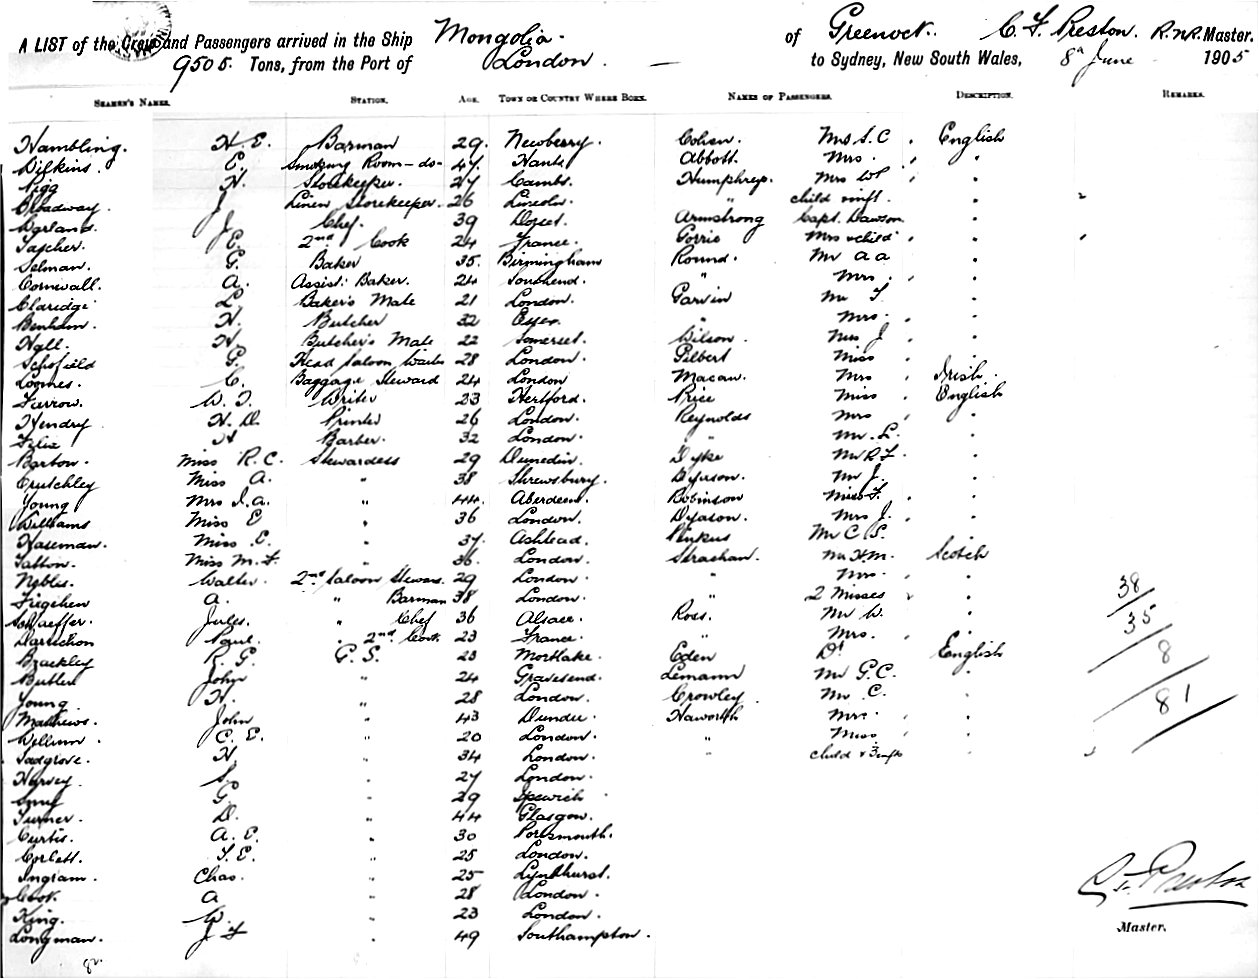 A LIST of the Crew and Passengers arrived in the Ship Mongolia of Greenock. C. F. Preston. R.N.R. Master.
9505 Tons, from the Port of London. to Sydney, New South Wales, 8th June 1905
SEAMEN'S NAMES. STATION. AGE. TOWN OR COUNTRY WHERE BORN. NAMES OF PASSENGERS. DESCRIPTION. REMARKS.
Hambling. H. E. Barman 29. Newberry. Cohen. Mrs S. C English
Wilkins. E. Smoking Room -do- 47. Hants Abbott. Mrs. "
Pigg H. Storekeeper. 27 Cambs. Humphrep. Mrs WP "
Broadway. J Linen Storekeeper. 26 Lincoln. " child & inft. "
J. Chef. 39 Dorset. Armstrong Capt. Dawson. "
Tascher. E. 2nd Cook 24 France. Gorrie Mrs & child "
Selman. G. Baker 35. Birmingham Round. Mr A A "
Cornwall. A. Assist: Baker. 24 Southend. " Mrs. "
Claridge L. Baker's Mate 21 London. Garvin Mr T. "
Benham. H. Butcher 32 Essex. " Mrs. "
Hall. H. Butcher's Mate 22 Somerset. Wilson. Miss J "
Schofield G. Head Saloon Waiter 28 London. Gilbert Miss "
Loomes. C. Baggage Steward 24 London Macaw. Mrs Irish.
Farrow. W. T. Writer 23 Hertford. Price Miss English
Hendry H. D. Printer 26 London. Reynolds Mrs "
Felix H Barber. 32 London. " Mr. L. "
Barton. Miss R. C. Stewardess 29 Dunedin. Dyke Mr R. F. "
Crutchley Miss A. " 38 Shrewsbury. Dyason. Mr J. "
Young Mrs J. A. " 44. Aberdeen. Robinson Miss F. "
Williams Miss E " 36 London. Dyason. Mrs J. "
Haseman. Miss E. " 37. Ashtead. Pinkus Mr C. S. "
Tatton. Miss M. F. " 36. London. Strachan. Mr H. M. Scotch
Nobles. Walter. 2nd Saloon Stewd. 29 London. " Mrs. " 38
Fieghen A. " Barman 38 London. " 2 Misses "
Schaeffer. Jules. " Chef 36 Alsace. Ross. Mr W. " 35
Darrichon Paul. " 2nd Cook. 23 France. " Mrs. "
Brackley R. G. G. S. 23 Mortlake. Eden Dr English 8
Butler John " 24 Gravesend. Lemann Mr G. C. "
Young. H. " 28 London. Crowley Mr C. " 81
Mathews. John " 43 Dundee. Haworth Mrs. "
C. E. " 20 London. " Miss "
Sadgrove. H " 34 London. " child & 3 infts "
Harvey S. " 27 London.
G. " 29 Ipswich
Turner D. " 44 Glasgow.
Curtis. A. E. " 30 Portsmouth.
Corlett. T. E. " 25 London.
Ingram. Chas. " 25 Lyndhurst.
Cook. A " 28 London.
King. W. " 23 London.
Longman. J F " 49 Southampton.
C. F. Preston
Master.